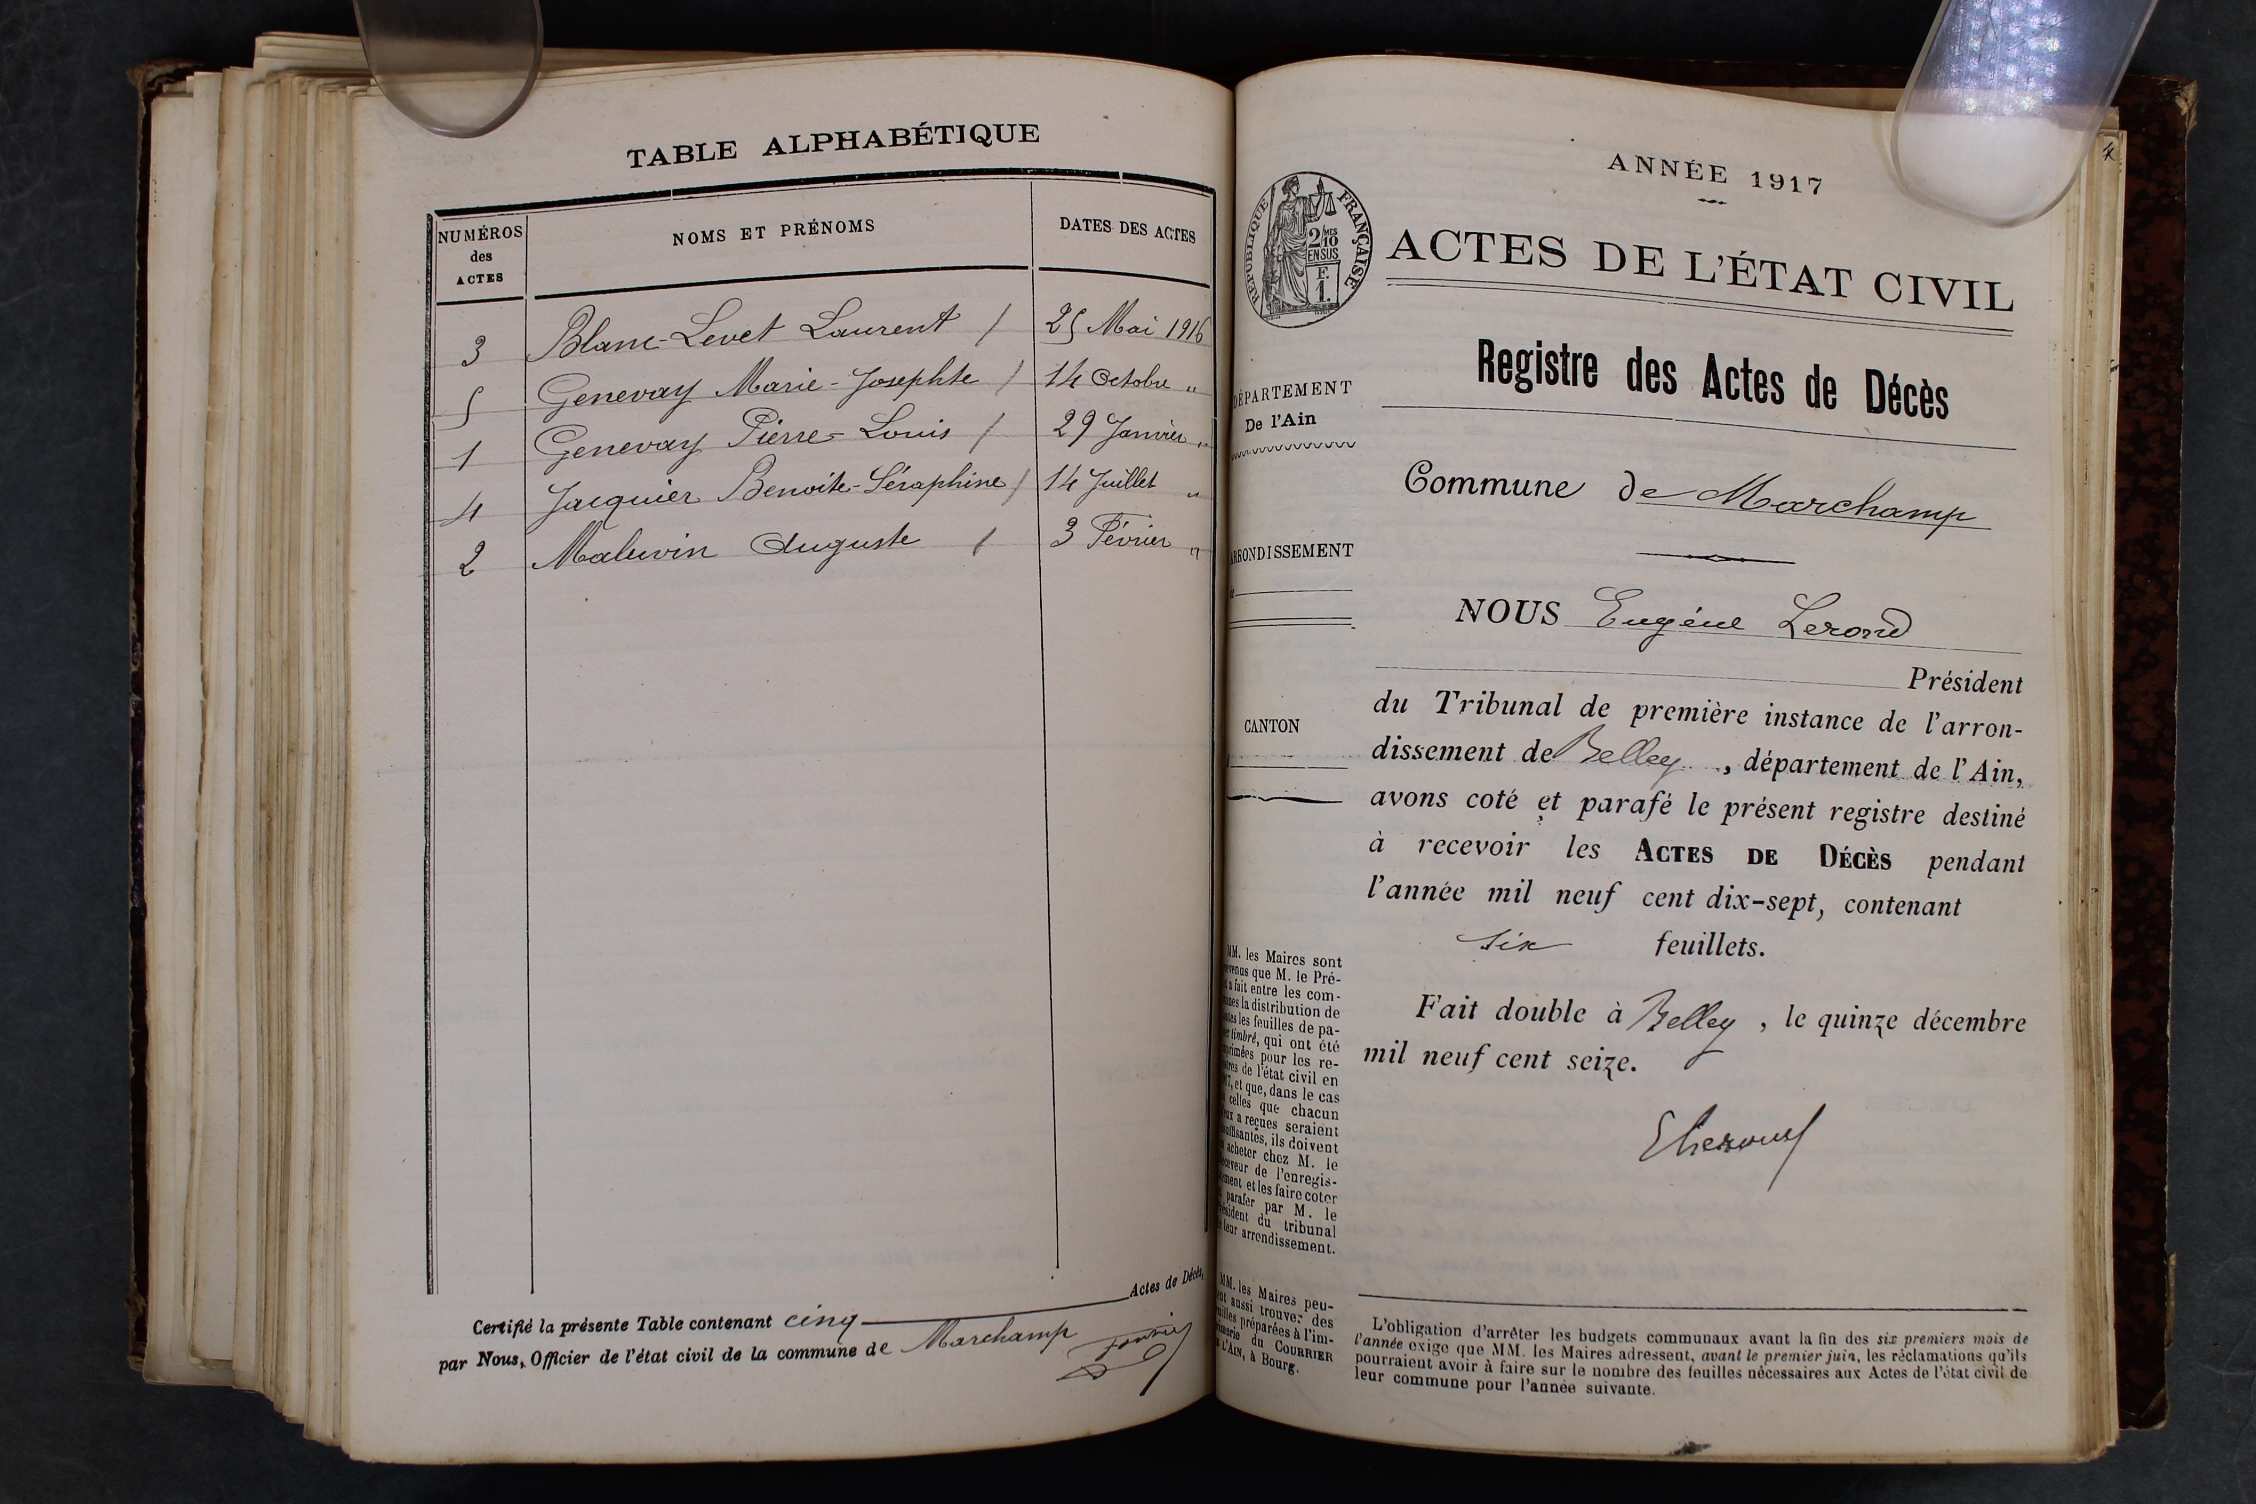 TABLE ALPHABÉTIQUE
NUMÉROS des ACTES
NOMS ET PRÉNOMS
DATES DES ACTES
3 Blanc-Levet Laurent / 25 Mai 1916
5 Genevay Marie-Josephte / 14 Octobre "
1 Genevay Pierre-Louis / 29 Janvier "
4 Jacquier Benoite-Séraphine / 14 Juillet "
2 Maluvin Auguste / 3 Février "
Certifié la présente Table contenant cinq Actes de Décès,
par Nous, Officier de l'état civil de la commune de Marchamp
ANNÉE 1917
RÉPUBLIQUE FRANÇAISE
2/10 MES
EN SUS
F.
1.
ACTES DE L'ÉTAT CIVIL
Registre des Actes de Décès
DÉPARTEMENT
De l'Ain
Commune de Marchamp
ARRONDISSEMENT
NOUS Eugène Lerond
Président
du Tribunal de première instance de l'arron-
CANTON
dissement de Belley, département de l'Ain,
avons coté et parafé le présent registre destiné
à recevoir les ACTES DE DÉCÈS pendant
l'année mil neuf cent dix-sept, contenant
six feuillets.
Fait double à Belley, le quinze décembre
mil neuf cent seize.
MM. les Maires sont
que M. le Pré-
a fait entre les com-
la distribution de
les feuilles de pa-
timbré, qui ont été
pour les re-
de l'état civil en
et que, dans le cas
celles que chacun
a reçues seraient
ils doivent
acheter chez M. le
de l'enregis-
et les faire coter
parafer par M. le
du tribunal
leur arrondissement.
MM. les Maires peu-
aussi trouver des
préparées à l'im-
du COURRIER
L'AIN, à Bourg.
L'obligation d'arrêter les budgets communaux avant la fin des six premiers mois de
l'année exige que MM. les Maires adressent, avant le premier juin, les réclamations qu'ils
pourraient avoir à faire sur le nombre des feuilles nécessaires aux Actes de l'état civil de
leur commune pour l'année suivante.